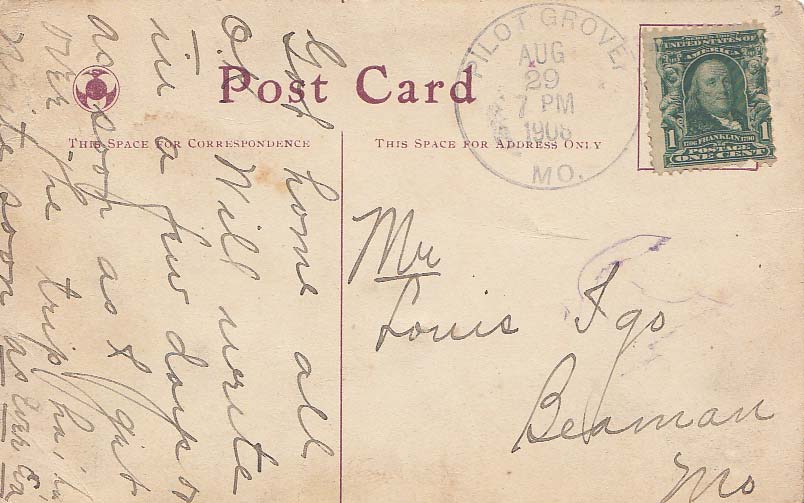 Post Card
THIS SPACE FOR CORRESPONDENCE
THIS SPACE FOR ADDRESS ONLY
PILOT GROVE
AUG
29
7 PM
1908
MO.
UNITED STATES OF
AMERICA
FRANKLIN
1 1
POSTAGE
ONE CENT
Got home all
O.K. Will write
in a few days or
as soon as I get
over the trip ha! ha
Write soon as Ever
Mr
Louis Igo
Beaman
Mo